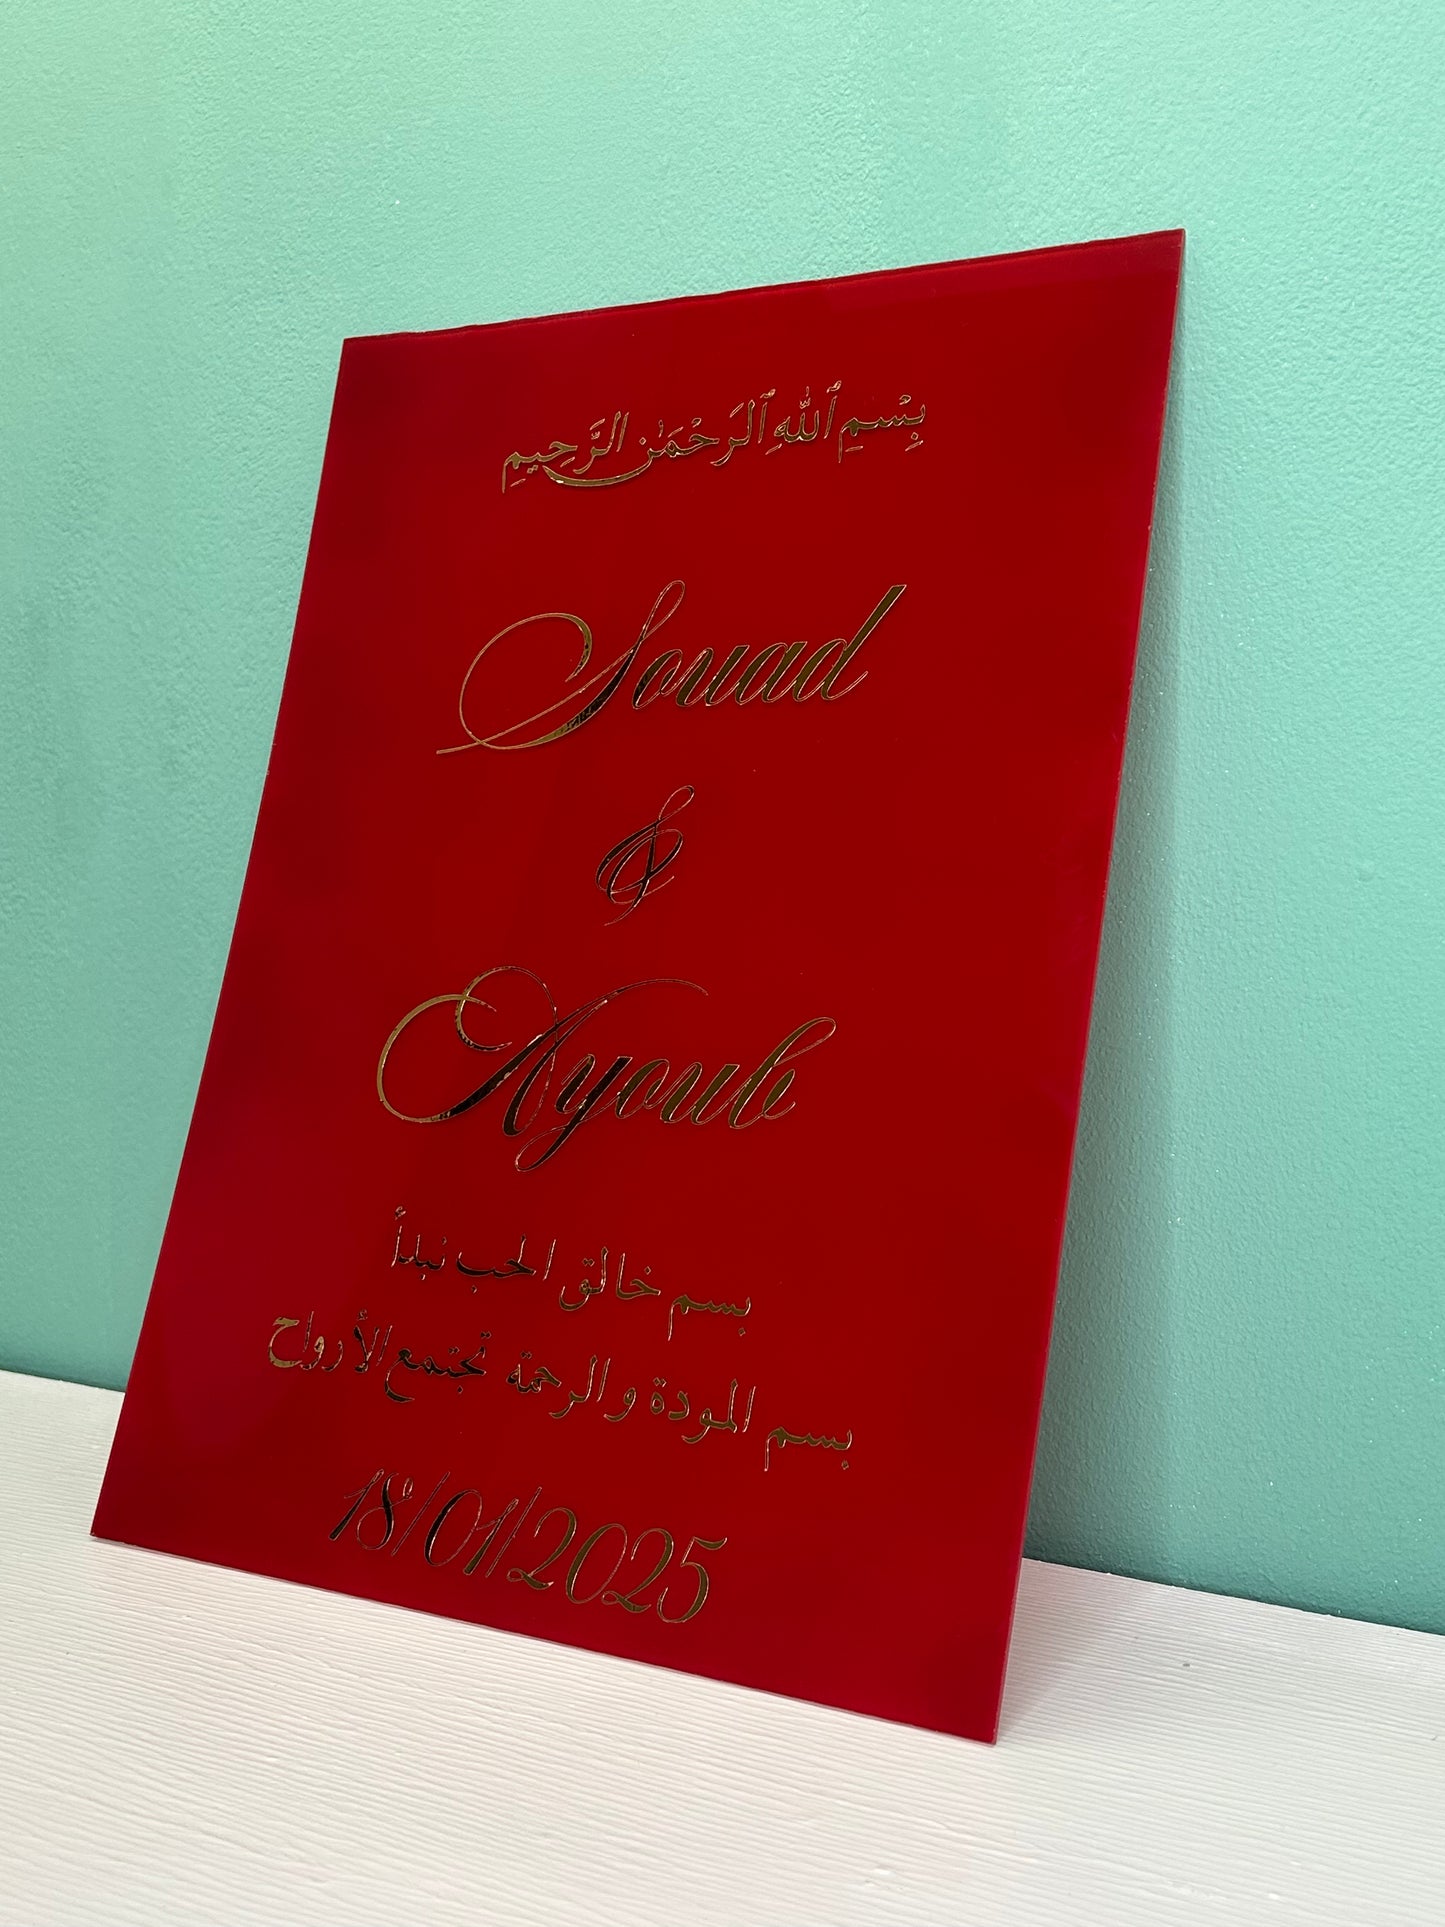 بِسْمِ ٱللَّهِ ٱلرَّحْمَٰنِ الرَّحِيمِ
Souad
&
Ayoub
بسم خالق الحب نبدأ
بسم المودة والرحمة تجتمع الأرواح
18/01/2025